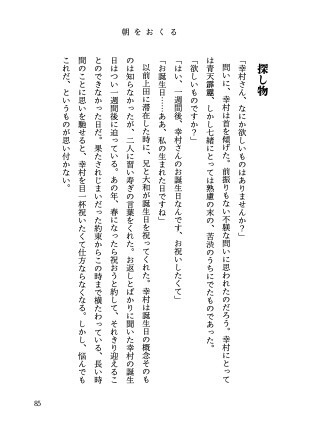 朝をおくる
探し物
「幸村さん、なにか欲しいものはありませんか？」
問いに、幸村は首を傾げた。前振りもない不躾な問いに思われたのだろう。幸村にとって
は青天霹靂、しかし七緒にとっては熟慮の末の、苦渋のうちにでたものであった。
「欲しいものですか？」
「はい、一週間後、幸村さんのお誕生日なんです、お祝いしたくて」
「お誕生日……ああ、私の生まれた日ですね」
以前上田に滞在した時に、兄と大和が誕生日を祝ってくれた。幸村は誕生日の概念そのも
のは知らなかったが、二人に習い寿ぎの言葉をくれた。お返しとばかりに聞いた幸村の誕生
日はつい一週間後に迫っている。あの年、春になったら祝おうと約して、それきり迎えるこ
とのできなかった日だ。果たされじまいだった約束からこの時まで横たわっている、長い時
間のことに思いを馳せると、幸村を目一杯祝いたくて仕方ならなくなる。しかし、悩んでも
これだ、というものが思い付かない。
85